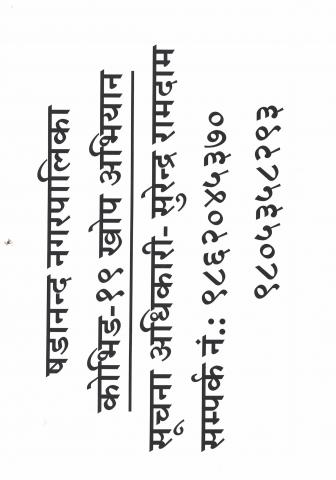 षडानन्द नगरपालिका
कोभिड-१९ खोप अभियान
सूचना अधिकारी- सुरेन्द्र रामदाम
सम्पर्क नं.: ९८६२०४५३७०
९८०५३५८२९३